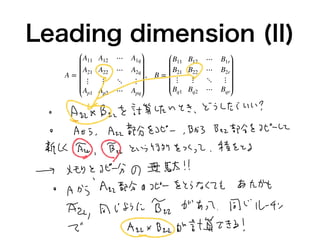 Leading dimension (II)
A = (A₁₁ A₁₂ ⋯ A₁q; A₂₁ A₂₂ ⋯ A₂q; ⋮ ⋮ ⋱ ⋮; Ap₁ Ap₂ ⋯ Apq), B = (B₁₁ B₁₂ ⋯ B₁r; B₂₁ B₂₂ ⋯ B₂r; ⋮ ⋮ ⋱ ⋮; Bq₁ Bq₂ ⋯ Bqr)
・ A₂₂ × B₂₂ を計算したいとき、どうしたらいい?
・ Aから、A₂₂部分をコピー、Bから B₂₂部分をコピーして
新しく Ã₂₂, B̃₂₂ という行列をつくって、積をとる
→ メモリとコピー分の無駄!!
・ Aから A₂₂部分のコピーをとらなくても あたかも
Ã₂₂, 同じように B̃₂₂ があって、同じルーチン
で A₂₂ × B₂₂ が計算できる!